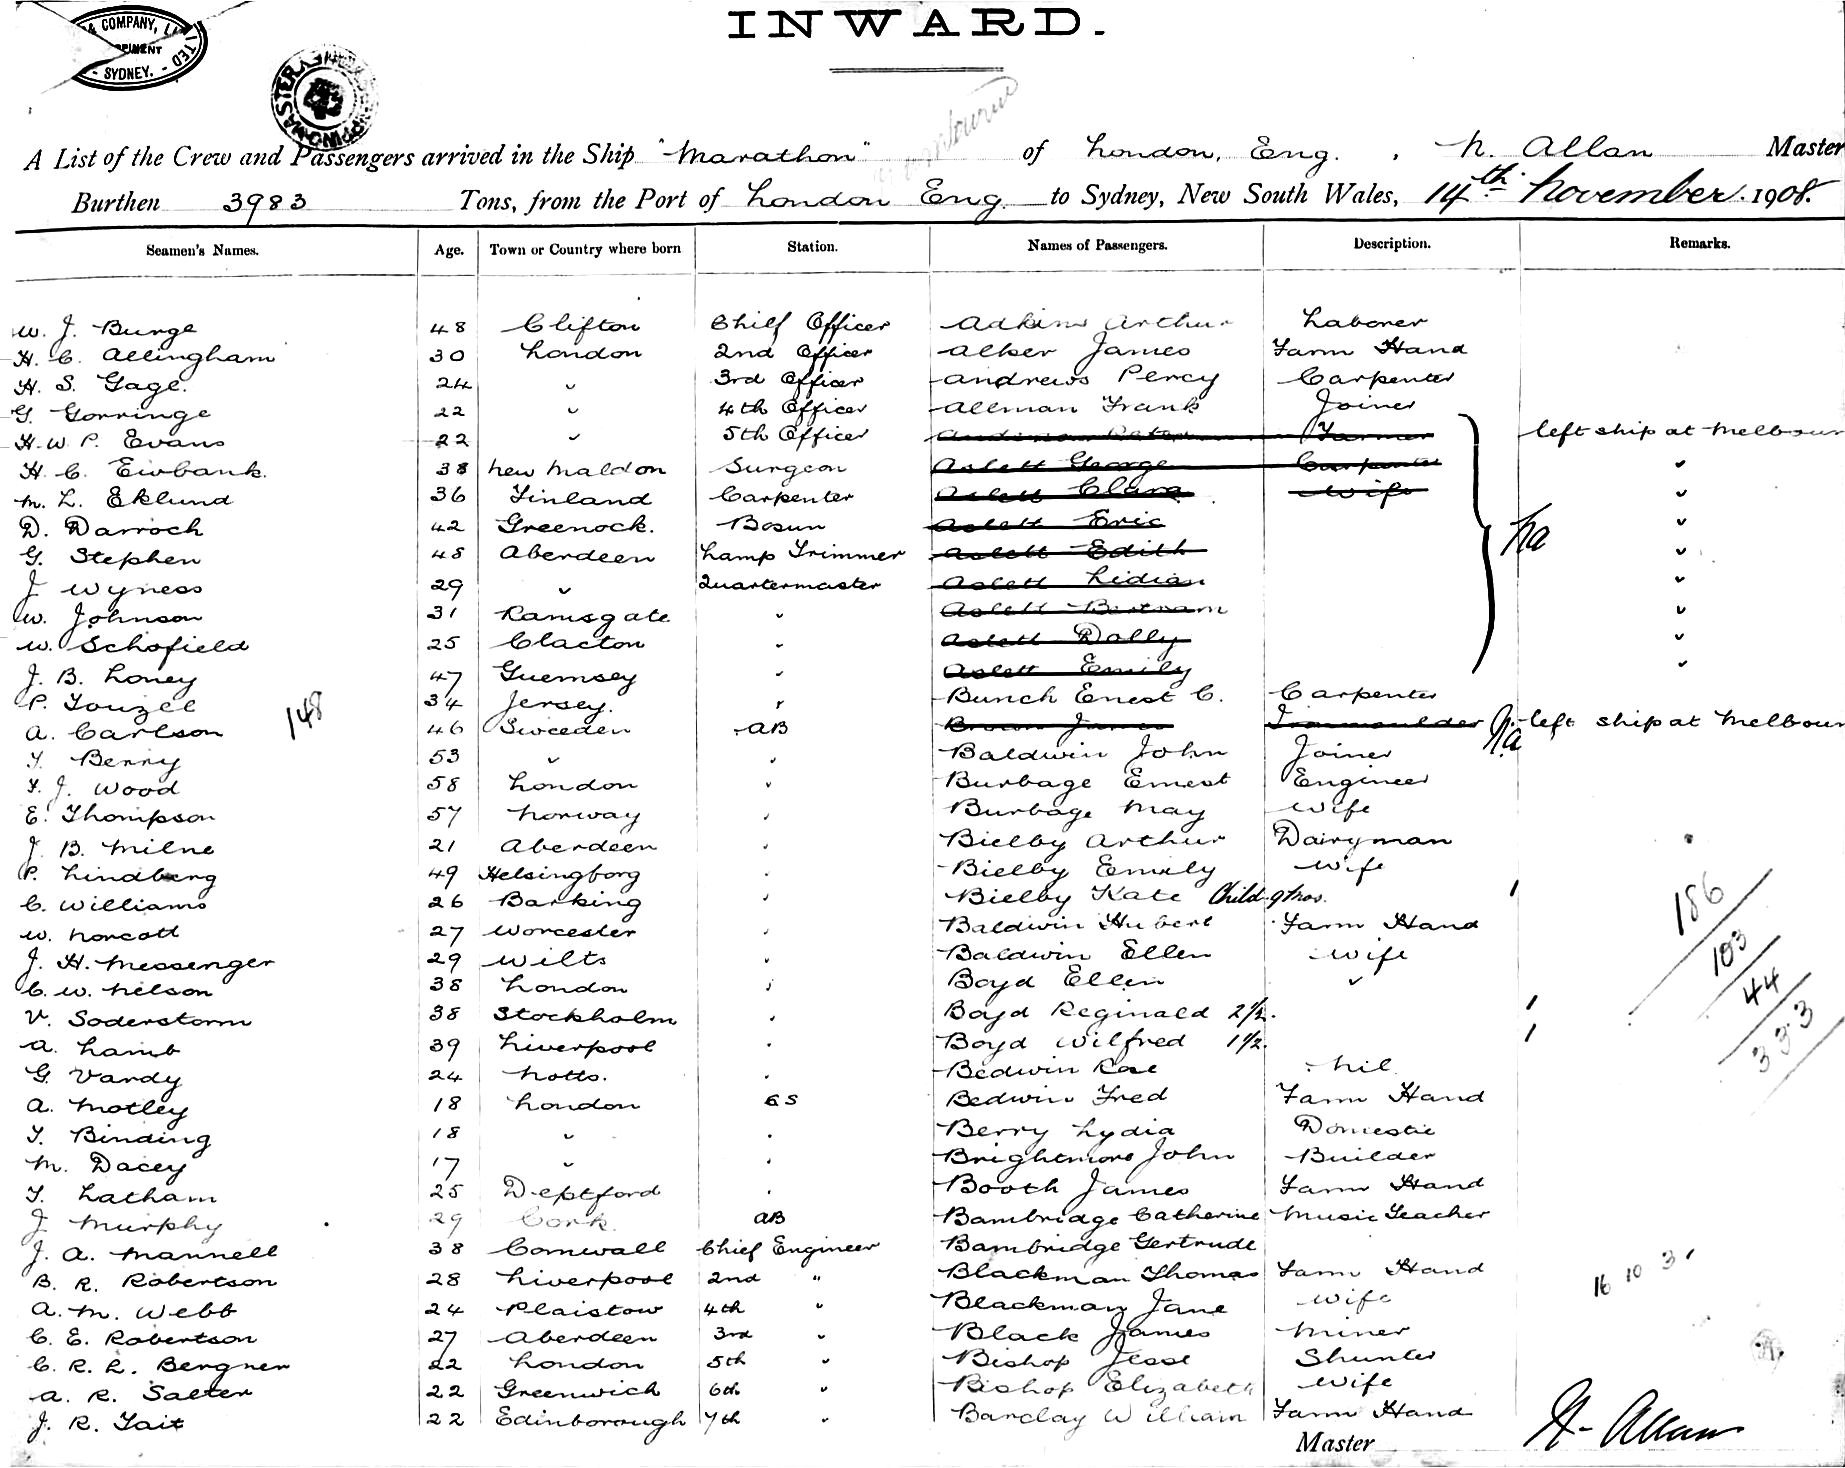 & COMPANY, LIMITED
SYDNEY.
INWARD.
SHIPPING MASTER
A List of the Crew and Passengers arrived in the Ship "Marathon" of London, Eng. , N. Allan Master
Burthen 3983 Tons, from the Port of London Eng. to Sydney, New South Wales, 14th November 1908.
Seamen's Names. Age. Town or Country where born Station. Names of Passengers. Description. Remarks.
W. J. Burge 48 Clifton Chief Officer Adkins Arthur Laborer
H. C. Allingham 30 London 2nd Officer Alker James Farm Hand
H. S. Gage. 24 " 3rd Officer Andrews Percy Carpenter
G. Gorringe 22 " 4th Officer Allman Frank Joiner
H. W. P. Evans 22 " 5th Officer Farmer left ship at Melbour
H. C. Ewbank. 38 New Maldon Surgeon Aslett George Carpenter "
M. L. Eklund 36 Finland Carpenter Aslett Clara Wife "
D. Darroch 42 Greenock. Bosun Aslett Eric "
G. Stephen 48 Aberdeen Lamp Trimmer Aslett Edith na "
J Wyness 29 " Quartermaster Aslett Lidian "
W. Johnson 31 Ramsgate " Aslett Bertram "
W. Schofield 25 Clacton " Aslett Dolly "
J. B. Loney 47 Guernsey " Aslett Emily "
P. Touzel 34 Jersey. " Bunch Enest C. Carpenter
148
A. Carlson 46 Sweeden AB Brown James Ironmoulder na left ship at Melbour
F. Berry 53 " " Baldwin John Joiner
F. J. Wood 58 London " Burbage Ernest Engineer
E. Thompson 57 Norway " Burbage May Wife
J. B. Milne 21 Aberdeen " Bielby Arthur Dairyman
P. Lindberg 49 Helsingborg " Bielby Emily Wife
C. Williams 26 Barking " Bielby Kate Child 9 Mos.
W. Norcott 27 Worcester " Baldwin Hubert Farm Hand
J. H. Messenger 29 Wilts " Baldwin Ellen Wife
C. W. Nelson 38 London " Boyd Ellen "
V. Soderstorm 38 Stockholm " Boyd Reginald 2 1/2.
A. Lamb 39 Liverpool " Boyd Wilfred 1 1/2.
G. Vardy 24 Notts. " Bedwin Rose Nil
A. Motley 18 London Bedwin Fred Farm Hand
F. Binding 18 " " Berry Lydia Domestic
M. Dacey 17 " " Brightmore John Builder
F. Latham 25 Deptford " Booth James Farm Hand
J. Murphy 29 Cork AB Bambridge Catherine Music Teacher
J. A. Mannell 38 Cornwall Chief Engineer Bambridge Gertrude
B. R. Robertson 28 Liverpool 2nd " Blackman Thomas Farm Hand
A. M. Webb 24 Plaistow 4th " Blackman Jane Wife
C. E. Robertson 27 Aberdeen 3rd " Black James Miner
C. R. L. Bergner 22 London 5th " Bishop Jesse Shunter
A. R. Salter 22 Greenwich 6th " Bishop Elizabeth Wife
J. R. Tait 22 Edinborough 7th " Barclay William Farm Hand
186
103
44
333
16 10 3
Master N. Allan